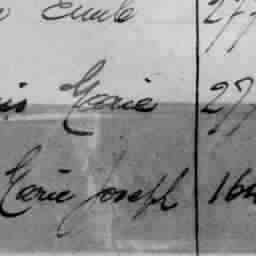 Emile 277
is Marie 27
Marie Joseph 164